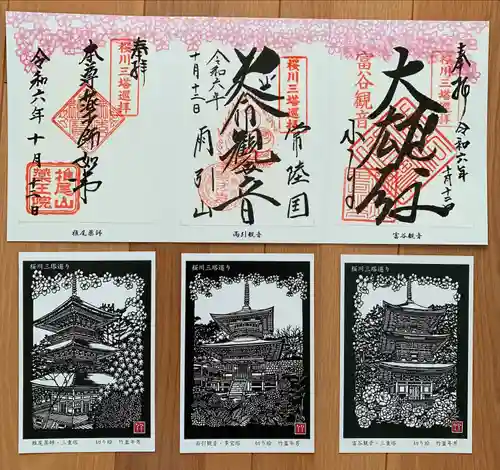 奉拝
桜川三塔巡拝
本尊薬師如来
令和六年十月十二日
椎尾山
薬王院
椎尾薬師
桜川三塔巡拝
常陸国
延命観音
令和六年
十月十二日
雨引山
雨引観音
奉拝
令和六年十月十二日
桜川三塔巡拝
大雄殿
富谷観音
小山寺
富谷観音
桜川三塔巡り
椎尾薬師・三重塔 切り絵 竹蓋年男
桜川三塔巡り
雨引観音・多宝塔 切り絵 竹蓋年男
桜川三塔巡り
富谷観音・三重塔 切り絵 竹蓋年男